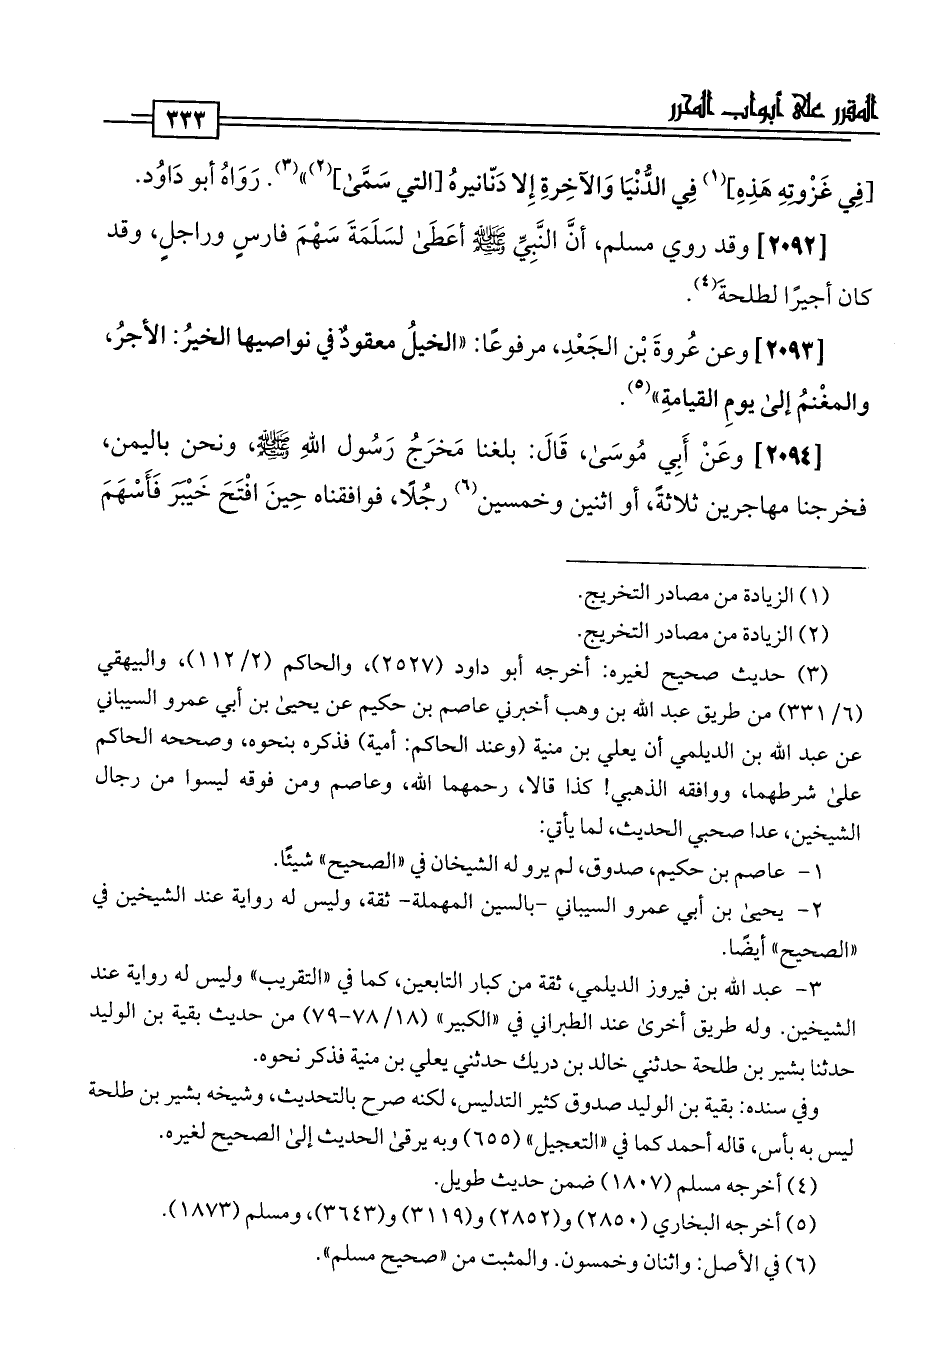 المقرر على أبواب المحرر
٣٣٣
[فِي غَزْوتِهِ هَذِهِ](١) فِي الدُّنْيَا وَالآخِرةِ إِلا دَنّانيرهُ [التي سَمَّىٰ](٢)»(٣). رَوَاهُ أبو دَاوُد.
[٢٠٩٢] وقد روي مسلم، أنَّ النَّبِيِّ ﷺ أعَطَىٰ لسَلَمَةَ سَهْمَ فارس وراجلٍ، وقد
كان أجيرًا لطلحةَ(٤).
[٢٠٩٣] وعن عُروةَ بْن الجَعْدِ، مرفوعًا: «الخيلُ معقودٌ في نواصيها الخيرُ: الأجرُ،
والمغْنمُ إلىٰ يومِ القيامةِ»(٥).
[٢٠٩٤] وعَنْ أَبِي مُوسَىٰ، قَالَ: بلغنا مَخرَجُ رَسُول اللهِ ﷺ، ونحن باليمن،
فخرجنا مهاجرين ثلاثةً، أو اثنين وخمسين(٦) رجُلًا، فوافقناه حِينَ افْتَحَ خَيْبَرَ فَأَسْهَمَ
(١) الزيادة من مصادر التخريج.
(٢) الزيادة من مصادر التخريج.
(٣) حديث صحيح لغيره: أخرجه أبو داود (٢٥٢٧)، والحاكم (٢/ ١١٢)، والبيهقي
(٦/ ٣٣١) من طريق عبد الله بن وهب أخبرني عاصم بن حكيم عن يحيىٰ بن أبي عمرو السيباني
عن عبد الله بن الديلمي أن يعلي بن منية (وعند الحاكم: أمية) فذكره بنحوه، وصححه الحاكم
علىٰ شرطهما، ووافقه الذهبي! كذا قالا، رحمهما الله، وعاصم ومن فوقه ليسوا من رجال
الشيخين، عدا صحبي الحديث، لما يأتي:
١- عاصم بن حكيم، صدوق، لم يرو له الشيخان في «الصحيح» شيئًا.
٢- يحيىٰ بن أبي عمرو السيباني -بالسين المهملة- ثقة، وليس له رواية عند الشيخين في
«الصحيح» أيضًا.
٣- عبد الله بن فيروز الديلمي، ثقة من كبار التابعين، كما في «التقريب» وليس له رواية عند
الشيخين. وله طريق أخرىٰ عند الطبراني في «الكبير» (١٨/ ٧٨-٧٩) من حديث بقية بن الوليد
حدثنا بشير بن طلحة حدثني خالد بن دريك حدثني يعلي بن منية فذكر نحوه.
وفي سنده: بقية بن الوليد صدوق كثير التدليس، لكنه صرح بالتحديث، وشيخه بشير بن طلحة
ليس به بأس، قاله أحمد كما في «التعجيل» (٦٥٥) وبه يرقىٰ الحديث إلىٰ الصحيح لغيره.
(٤) أخرجه مسلم (١٨٠٧) ضمن حديث طويل.
(٥) أخرجه البخاري (٢٨٥٠) و(٢٨٥٢) و(٣١١٩) و(٣٦٤٣)، ومسلم (١٨٧٣).
(٦) في الأصل: واثنان وخمسون. والمثبت من «صحيح مسلم».